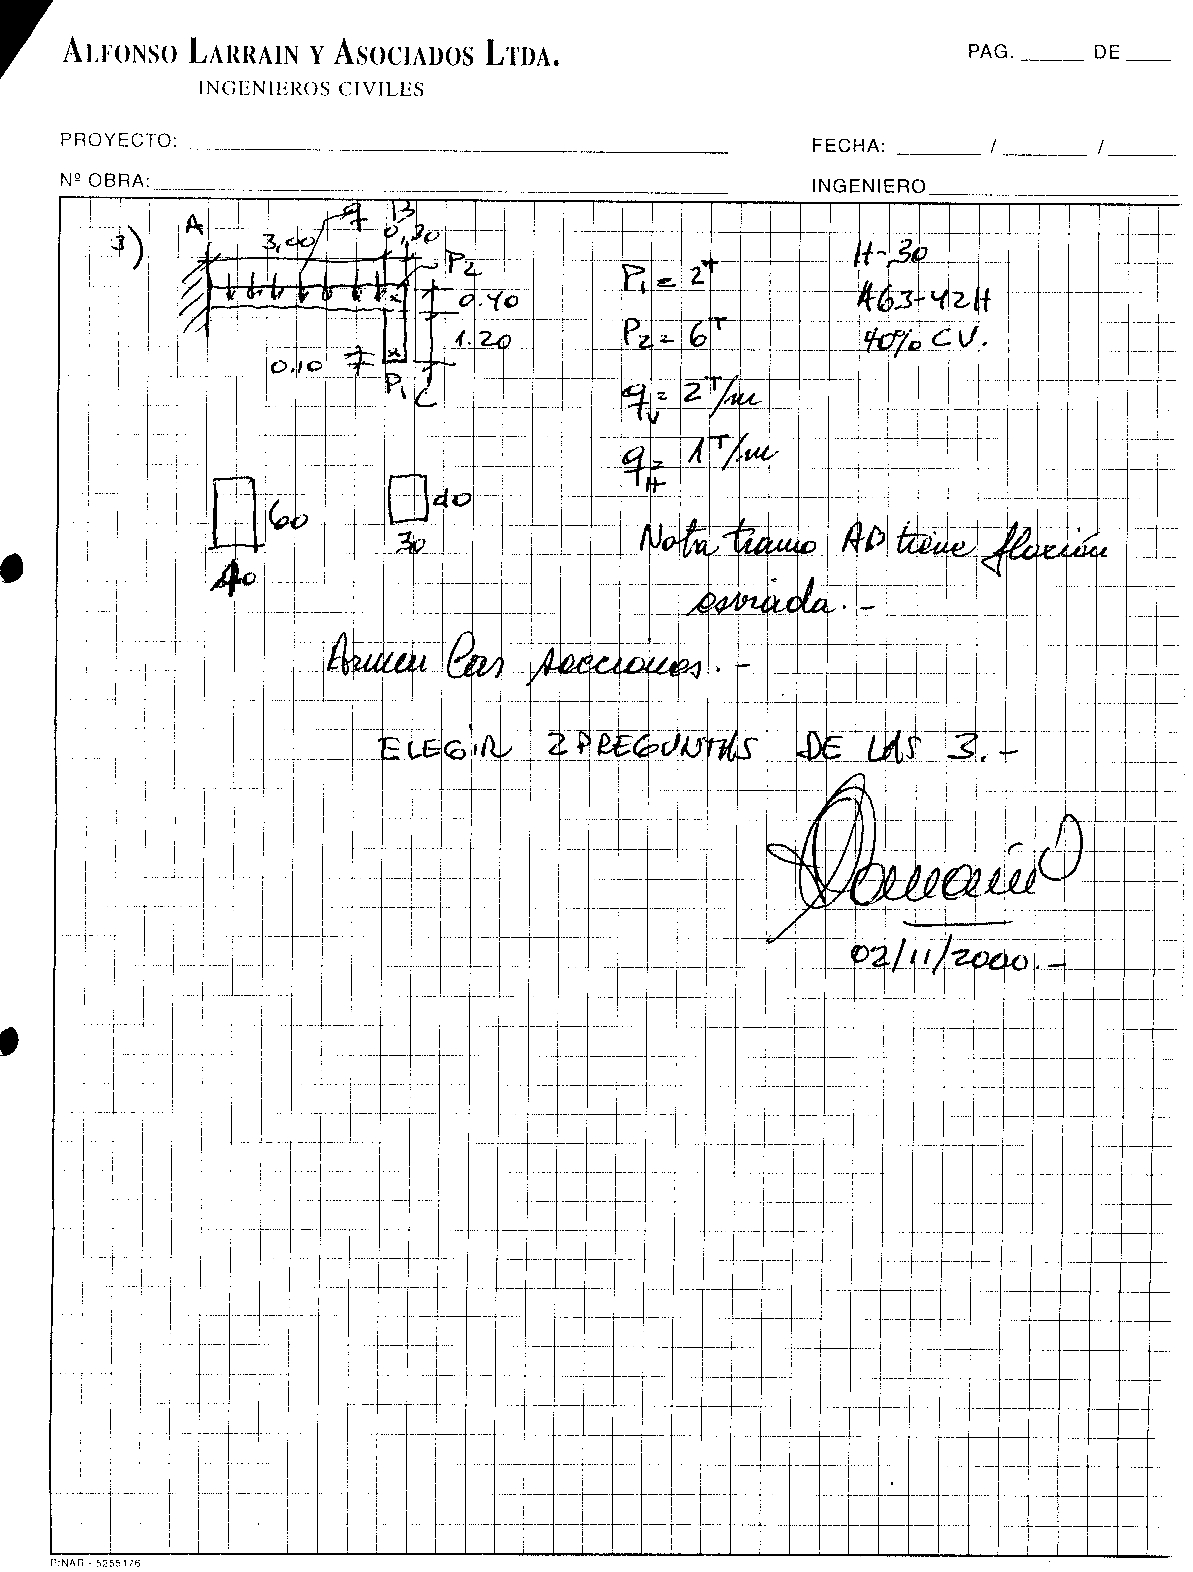 ALFONSO LARRAIN Y ASOCIADOS LTDA.
INGENIEROS CIVILES
PAG. ______ DE ____
PROYECTO:
FECHA: ______ / ______ / ______
Nº OBRA:
INGENIERO
3)
A
q
B
3,00
0,30
P2
0.40
1.20
0.10
P1
C
P1 = 2T
P2 = 6T
qV = 2T/m
qH = 1T/m
H-30
A63-42H
40% CV.
60
40
40
30
Nota tramo AB tiene flexión
esviada.-
Armen las secciones.-
ELEGIR 2 PREGUNTAS DE LAS 3.-
02/11/2000.-
PINAR - 5255176